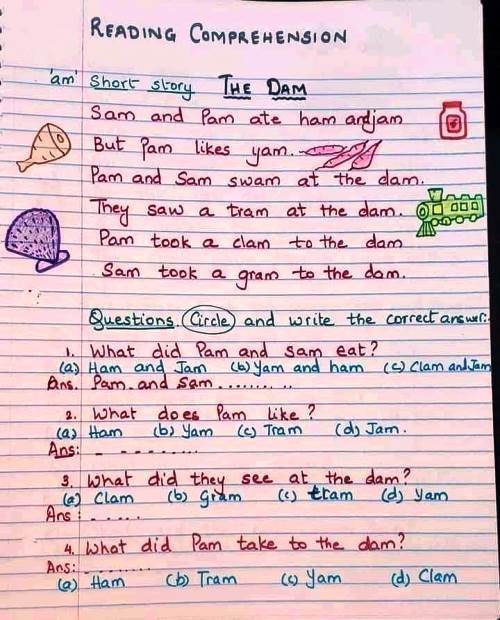 READING COMPREHENSION
'am' Short story THE DAM
Sam and Pam ate ham and jam
But Pam likes yam.
Pam and Sam swam at the dam.
They saw a tram at the dam.
Pam took a clam to the dam
Sam took a gram to the dam.
Questions. Circle and write the correct answer:.
1. What did Pam and Sam eat?
(a) Ham and Jam (b) Yam and ham (c) Clam and Jam
Ans. Pam and Sam..........
2. What does Pam like?
(a) Ham (b) Yam (c) Tram (d) Jam.
Ans: - - ........
3. What did they see at the dam?
(a) Clam (b) Gram (c) tram (d) Yam
Ans: - ....
4. What did Pam take to the dam?
Ans: .........
(a) Ham (b) Tram (c) Yam (d) Clam